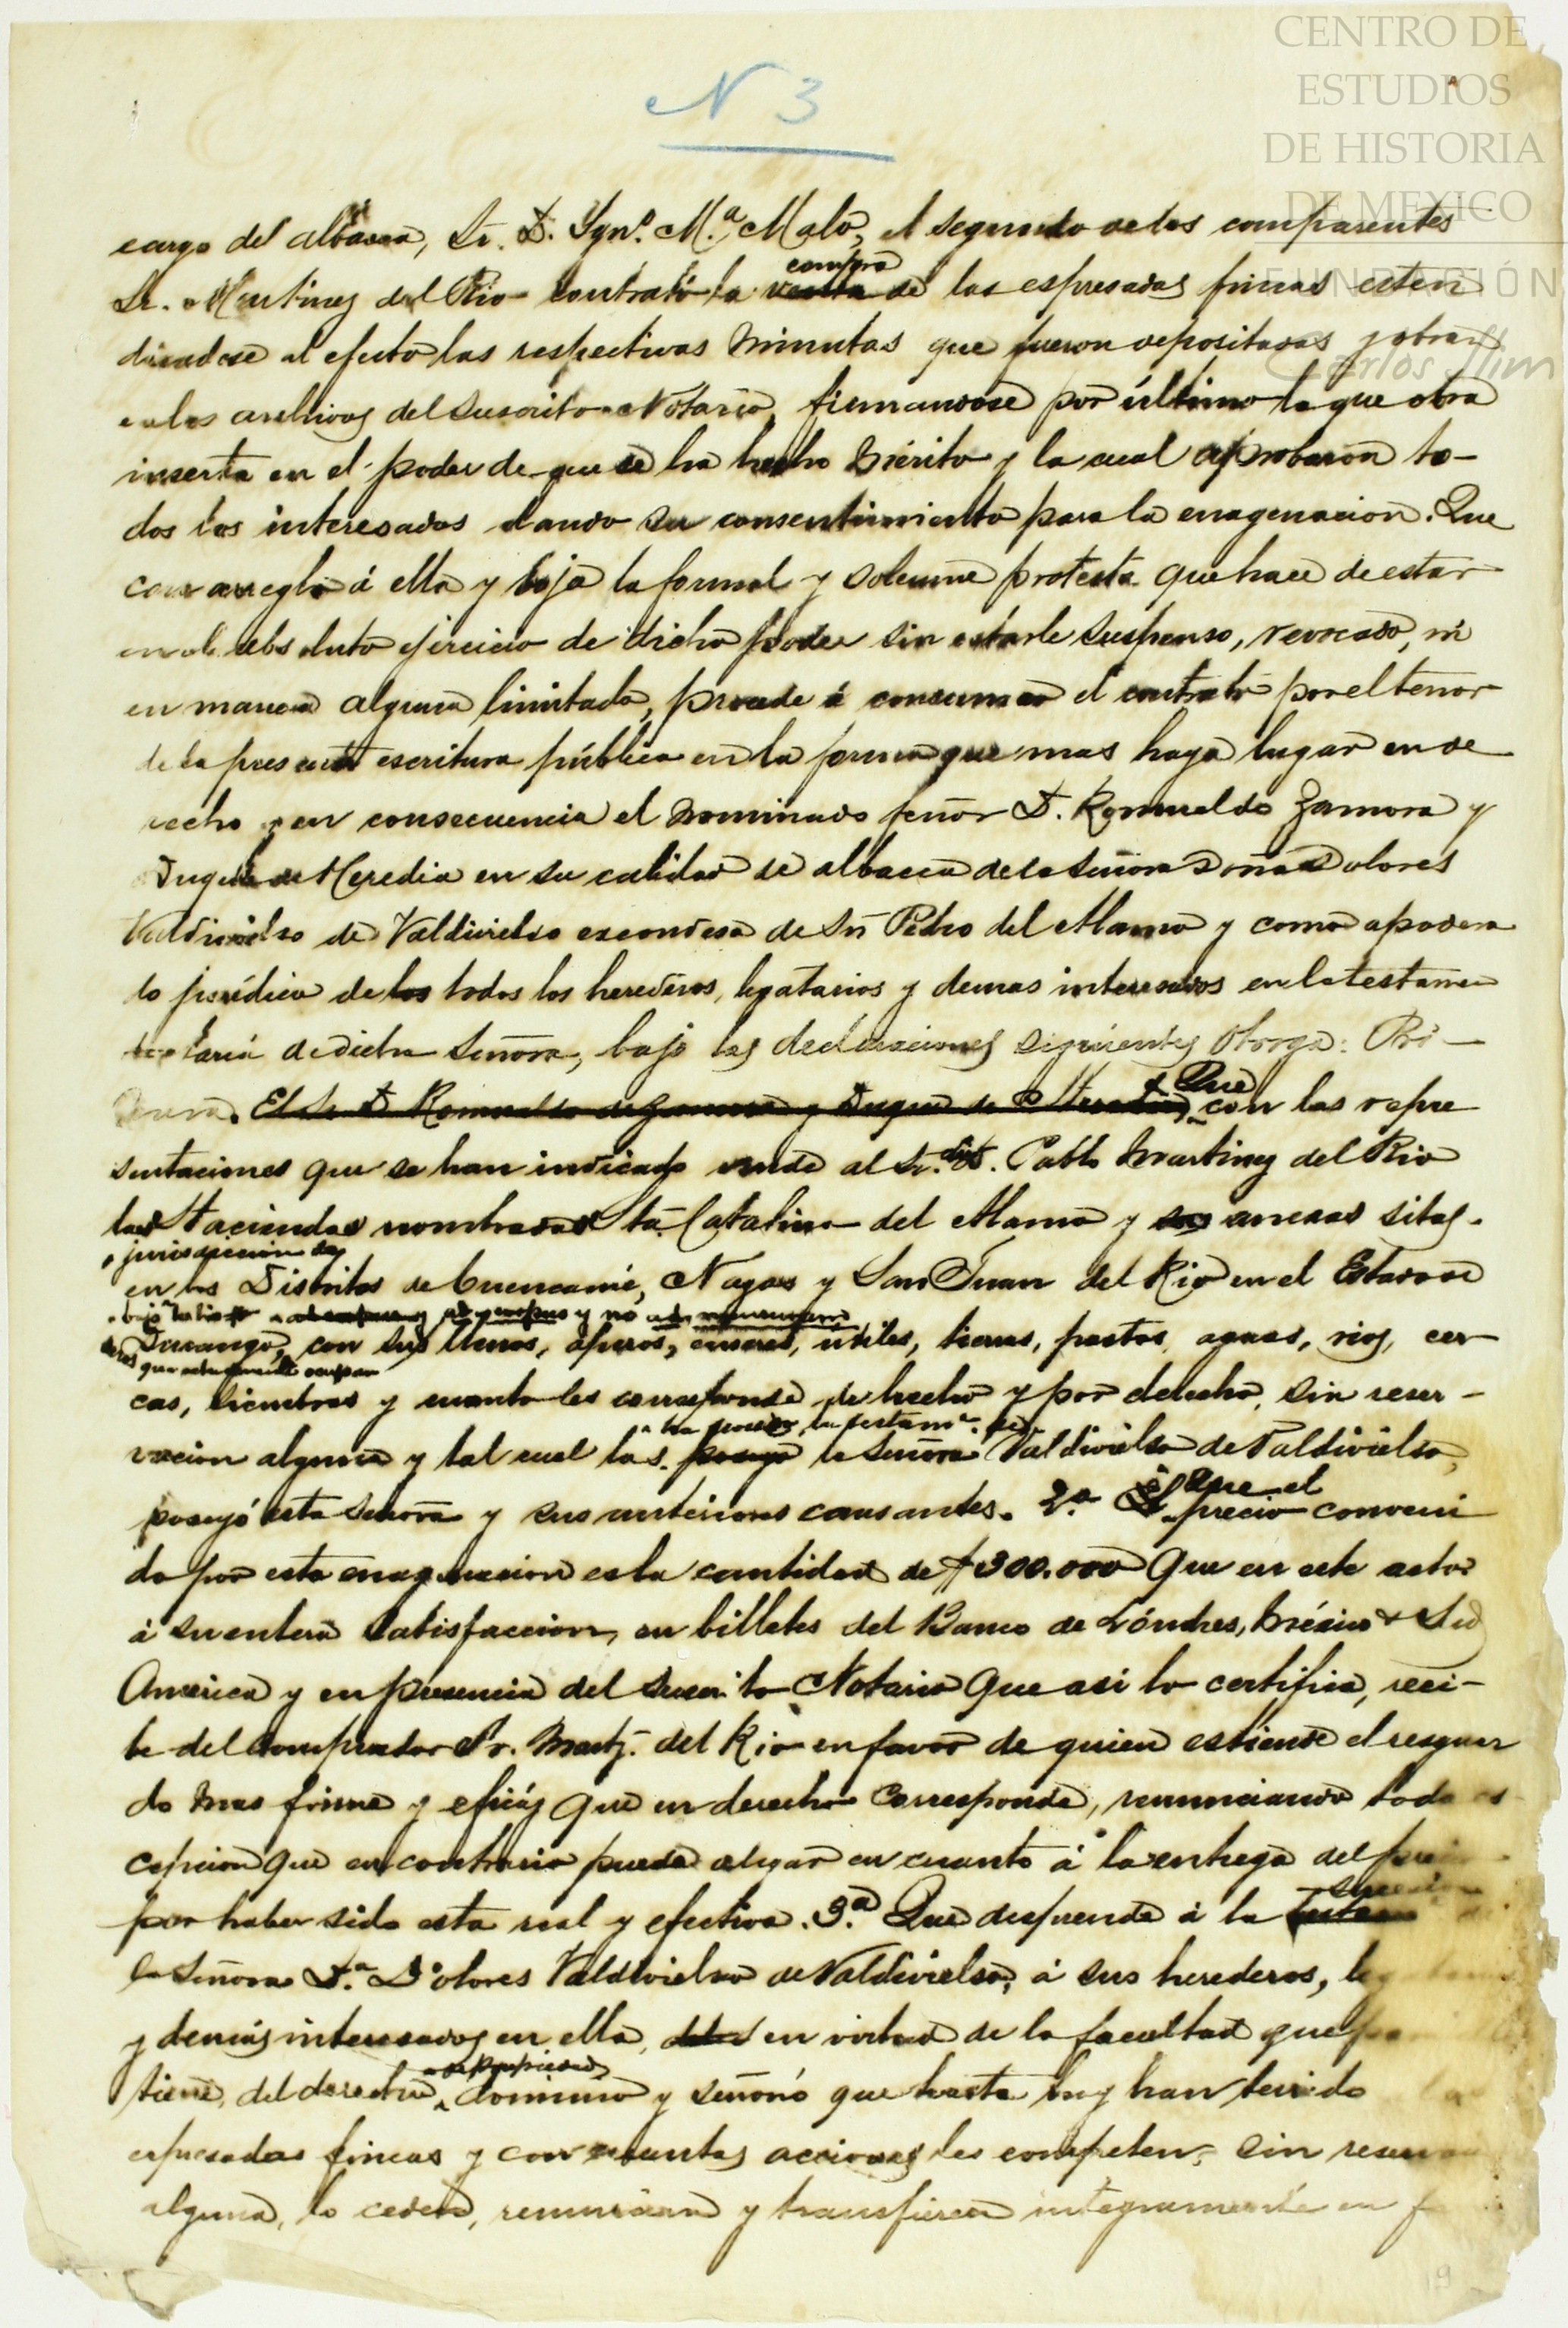 CENTRO DE
ESTUDIOS
DE HISTORIA
DE MEXICO
FUNDACIÓN
Carlos Slim
N 3
cargo del albacea, Sr. D. Ygn.º M.ª Malo, el segundo de los comparentes
Sr. Martinez del Rio contrató la venta de las espresadas fincas esten
compra
diendose al efecto las respectivas minutas que fueron depositadas y obran
en los archivos del suscrito Notario, firmandose por último la que obra
inserta en el poder de que se ha hecho mérito y la cual aprobaron to-
dos los interesados dando su consentimiento para la enagenacion. Que
con arreglo á ella y bajo la formal y solemne protesta que hace de estar
en el absoluto ejercicio de dicho poder sin estarle suspenso, revocado, ni
en manera alguna limitado, procede á consumar el contrato por el tenor
de la presente escritura pública en la forma que mas haya lugar en de
recho y en consecuencia el nominado señor D. Romualdo Zamora y
Duque de Heredia en su calidad de albacea de la señora Doña Dolores
Valdivielso de Valdivielso excondesa de Sn Pedro del Alamo y como apodera
do jurídico de los todos los herederos, legatarios y demas interesados en la testamen
taria de dicha Señora, bajo las declaraciones siguientes otorga: Pri-
mera. El Sr D Romualdo de Zamora y Duque de Heredia, Que con las repre
sentaciones que se han indicado vende al Sr. dn D. Pablo Martinez del Rio
las Haciendas nombradas Sta Catalina del Alamo y sus anexas sitas
jurisdiccion de
en los Distritos de Cuencamé, Nazas y San Juan del Rio en el Estado de
y no
Durango, con sus llenos, aperos, enseres, útiles, tierras, pastos, aguas, rios, cer
que actualmente ocupan
cas, siembras y cuanto les corresponde de hecho y por derecho, sin reser-
ha poseido la testam.ª de
vacion alguna y tal cual las poseyó la Señora Valdivielso de Valdivielso,
poseyó esta Señora y sus anteriores causantes. 2.ª El Que el precio conveni
do por esta enagenacion es la cantidad de $300.000 que en este acto
á su entera satisfaccion, en billetes del Banco de Lóndres, México & Sud
America y en presencia del suscrito Notario que asi lo certifica, reci-
be del comprador Sr. Martz. del Rio en favor de quien estiende el resguar
do mas firme y eficáz que en derecho corresponde, renunciando toda es
cepcion que en contrario pueda alegar en cuanto á la entrega del precio
por haber sido esta real y efectiva. 3.ª Que desprende á la
la Señora D.ª Dolores Valdivielso de Valdivielso, á sus herederos,
y demás interesados en ella, en virtud de la facultad que
de propiedad
tiene, del derecho dominio y señorio que hasta hoy han tenido
espresadas fincas y con cuantas acciones les competen, sin
alguna, lo ceden, renuncian y transfieren integramente en
19